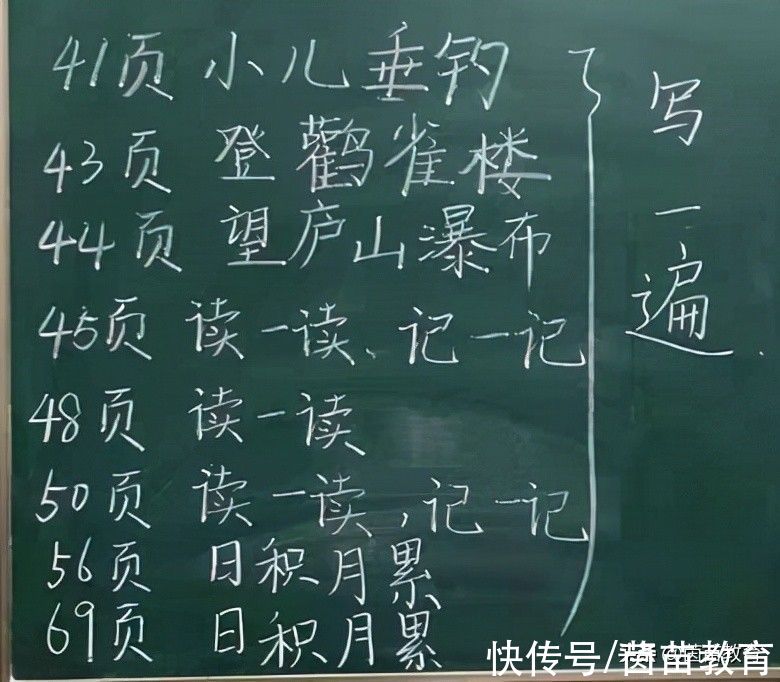 41页 小儿垂钓
43页 登鹳雀楼
44页 望庐山瀑布
45页 读一读、记一记
48页 读一读
50页 读一读,记一记
56页 日积月累
69页 日积月累
写一遍.
快传号/茵苗教育